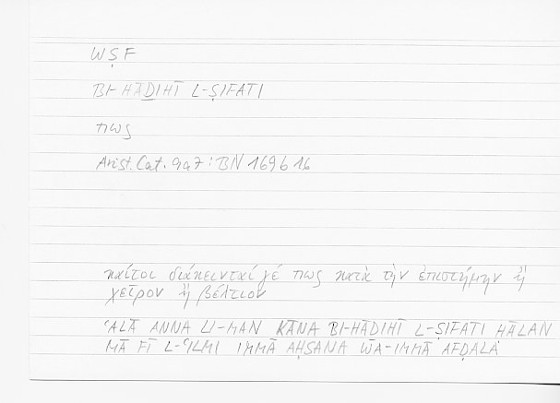 WṢF
BI-HĀḎIHĪ L-ṢIFATI
πως
Arist. Cat. 9a7 : BN 169b16
καίτοι διάκεινταί γέ πως κατὰ τὴν ἐπιστήμην ἢ
χεῖρον ἢ βέλτιον
ʿALĀ ANNA LI-MAN KĀNA BI-HĀḎIHĪ L-ṢIFATI ḤĀLAN
MĀ FĪ L-ʿILMI IMMĀ AḤSANA WA-IMMĀ AFḌALA